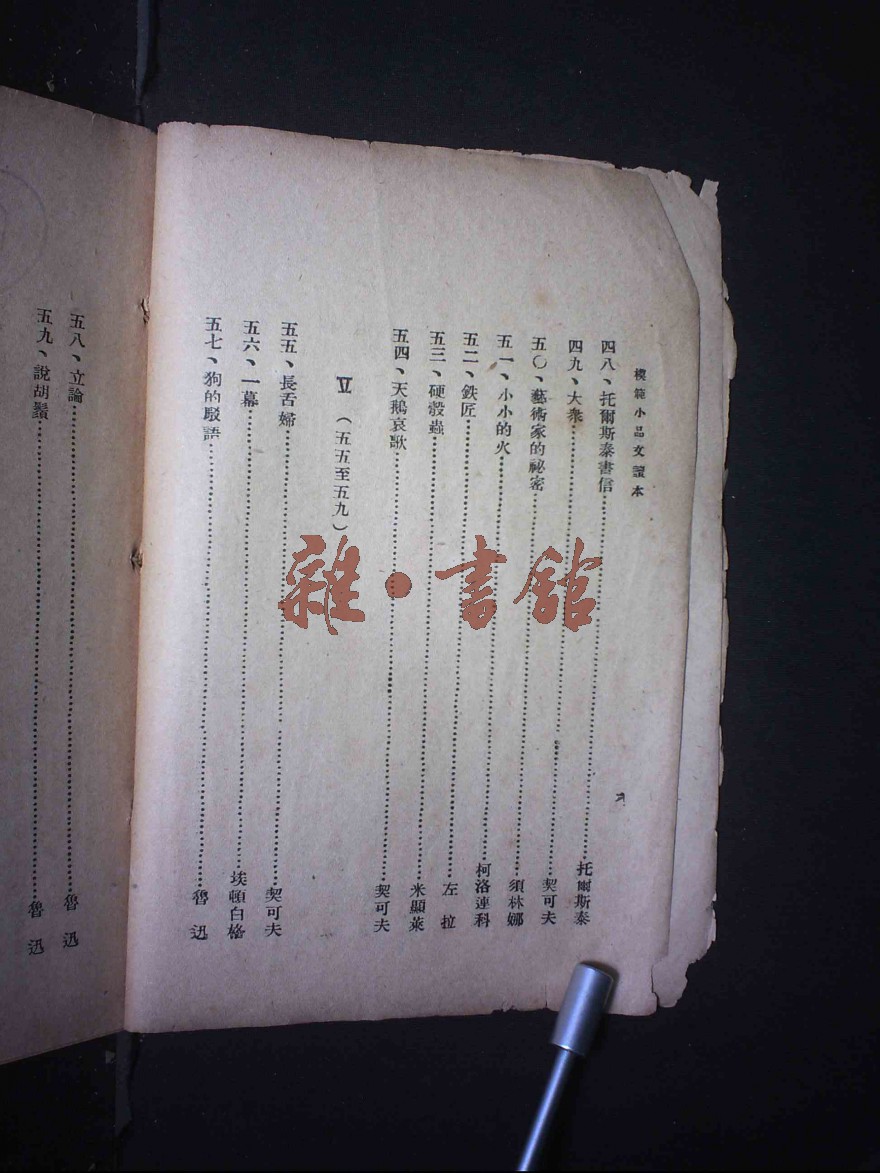 模範小品文讀本
四八、托爾斯泰書信……托爾斯泰
四九、大衆……契可夫
五〇、藝術家的祕密……須林娜
五一、小小的火……柯洛連科
五二、鉄匠……左拉
五三、硬殼蟲……米顯萊
五四、天鵝哀歌……契可夫
V（五五至五九）
五五、長舌婦……契可夫
五六、一幕……埃頓白格
五七、狗的駁語……魯迅
五八、立論……魯迅
五九、說胡鬚……魯迅
雜·書館